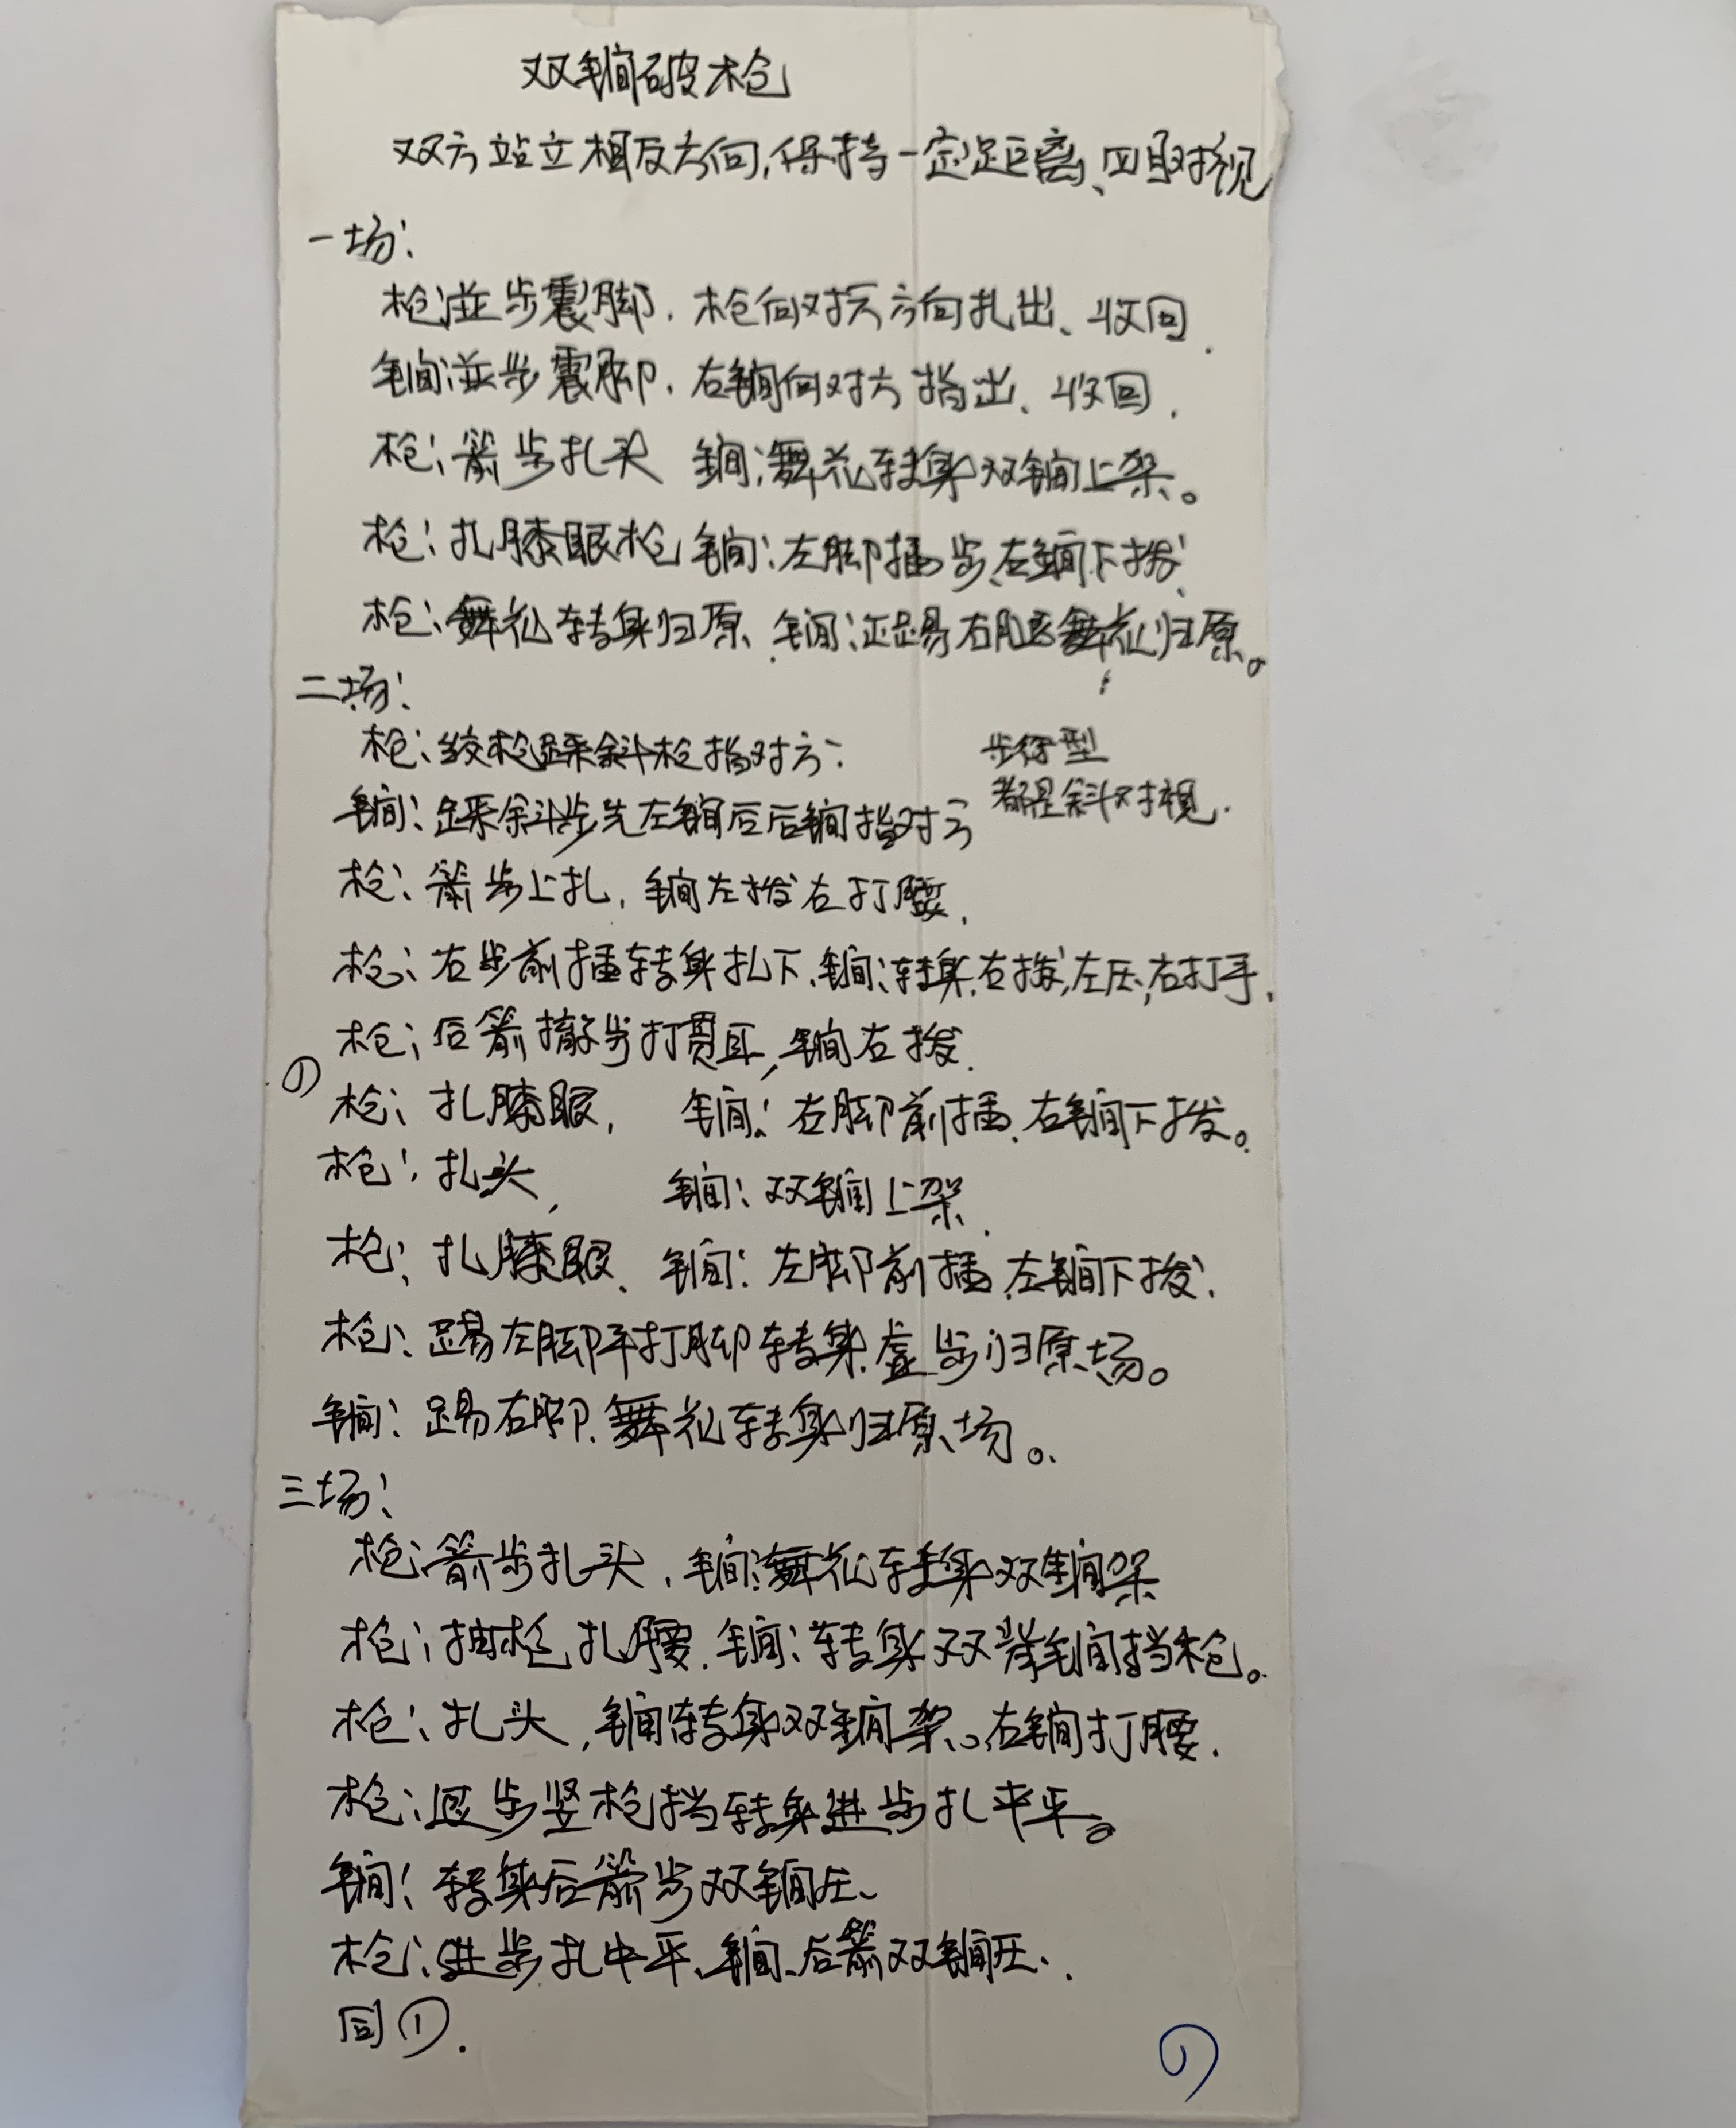 双锏破枪
双方站立相反方向,保持一定距离、四目对视
一场:
枪:並步震脚,枪向对方方向扎出、收回.
锏:並步震脚,右锏向对方指出、收回.
枪:箭步扎头 锏:舞花转身双锏上架。
枪:扎膝眼枪 锏:左脚插步、左锏下拨
枪:舞花转身归原、锏:正踢右腿舞花归原。
二场:
枪:绞枪踩斜枪指对方: 步行型
都是斜对视.
锏:踩斜步先左锏后后锏指对方
枪:箭步上扎,锏左拨右打腰.
枪:右步前插转身扎下.锏:转身.右拨,左压,右打手.
枪:后箭撤步打贯耳,锏右拨.
① 枪:扎膝眼, 锏:右脚前插.右锏下拨。
枪:扎头, 锏:双锏上架.
枪:扎膝眼、锏:左脚前插.左锏下拨.
枪:踢左脚手打脚转身.虚步归原场。
锏:踢右脚.舞花转身归原场。
三场:
枪:箭步扎头,锏:舞花转身双锏架
枪:抽枪扎腰.锏:转身双背锏挡枪。
枪:扎头,锏转身双锏架。右锏打腰.
枪:退步竖枪挡转身进步扎中平。
锏:转身后箭步双锏压、
枪:进步扎中平、锏、后箭双锏压.
同①.
①